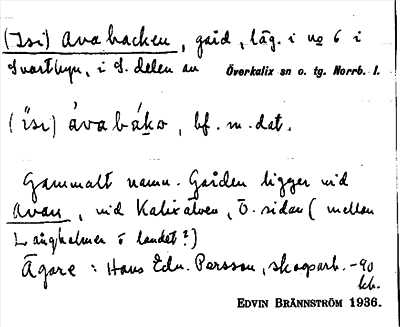 (Isi) Avabacken, gård, läg. i no 6 i
Svartbyn, i S. delen av Överkalix sn o. tg. Norrb. l.
(ísi) ávabáko, bf. m. dat.
Gammalt namn. Gården ligger vid
Avan, vid Kalixälven, Ö. sidan (mellan
Långholmen o landet?)
Ägare: Hans Edv. Persson, skogsarb. -90
kb.
EDVIN BRÄNNSTRÖM 1936.